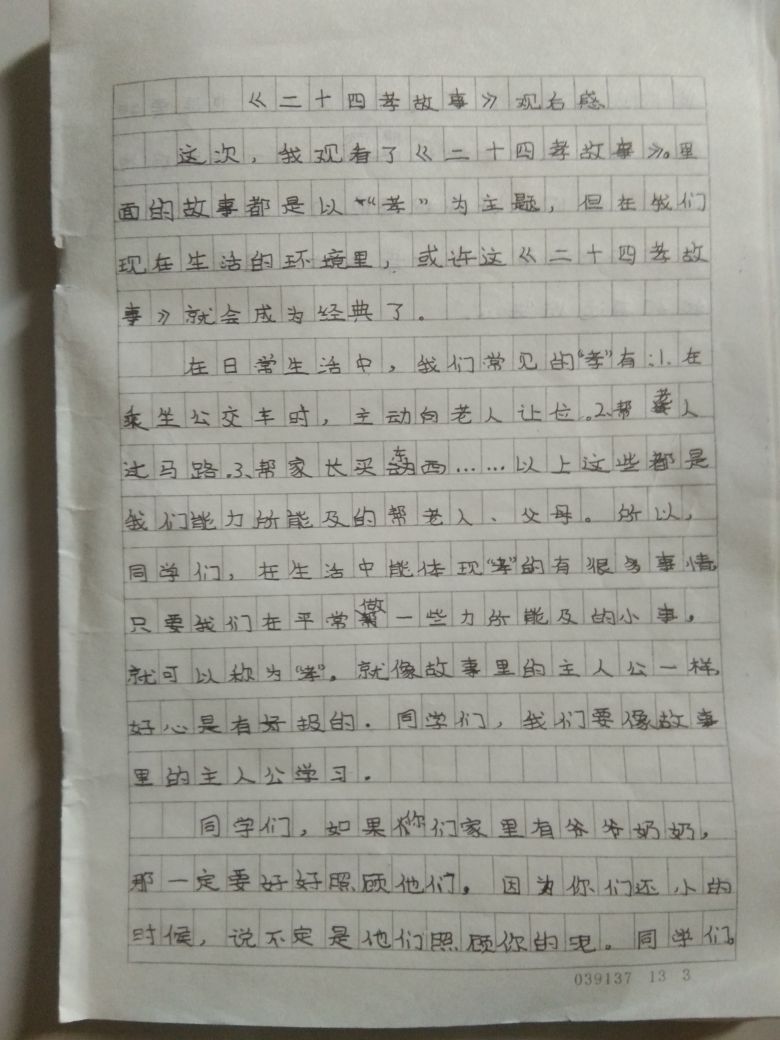 《二十四孝故事》观后感
这次，我观看了《二十四孝故事》。里
面的故事都是以“孝”为主题，但在我们
现在生活的环境里，或许这《二十四孝故
事》就会成为经典了。
在日常生活中，我们常见的“孝”有：1.在
乘坐公交车时，主动向老人让位。2.帮老人
过马路。3.帮家长买东西……以上这些都是
我们能力所能及的帮老人、父母。所以，
同学们，在生活中能体现“孝”的有很多事情，
只要我们在平常做一些力所能及的小事，
就可以称为“孝”。就像故事里的主人公一样，
好心是有好报的．同学们，我们要像故事
里的主人公学习．
同学们，如果你们家里有爷爷奶奶，
那一定要好好照顾他们。因为你们还小的
时候，说不定是他们照顾你的呢。同学们，
039137 13 3